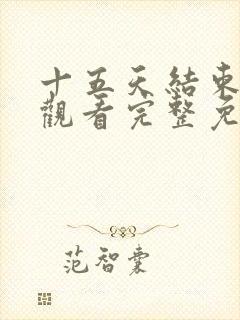 十五天結束
觀看完整免
范智囊